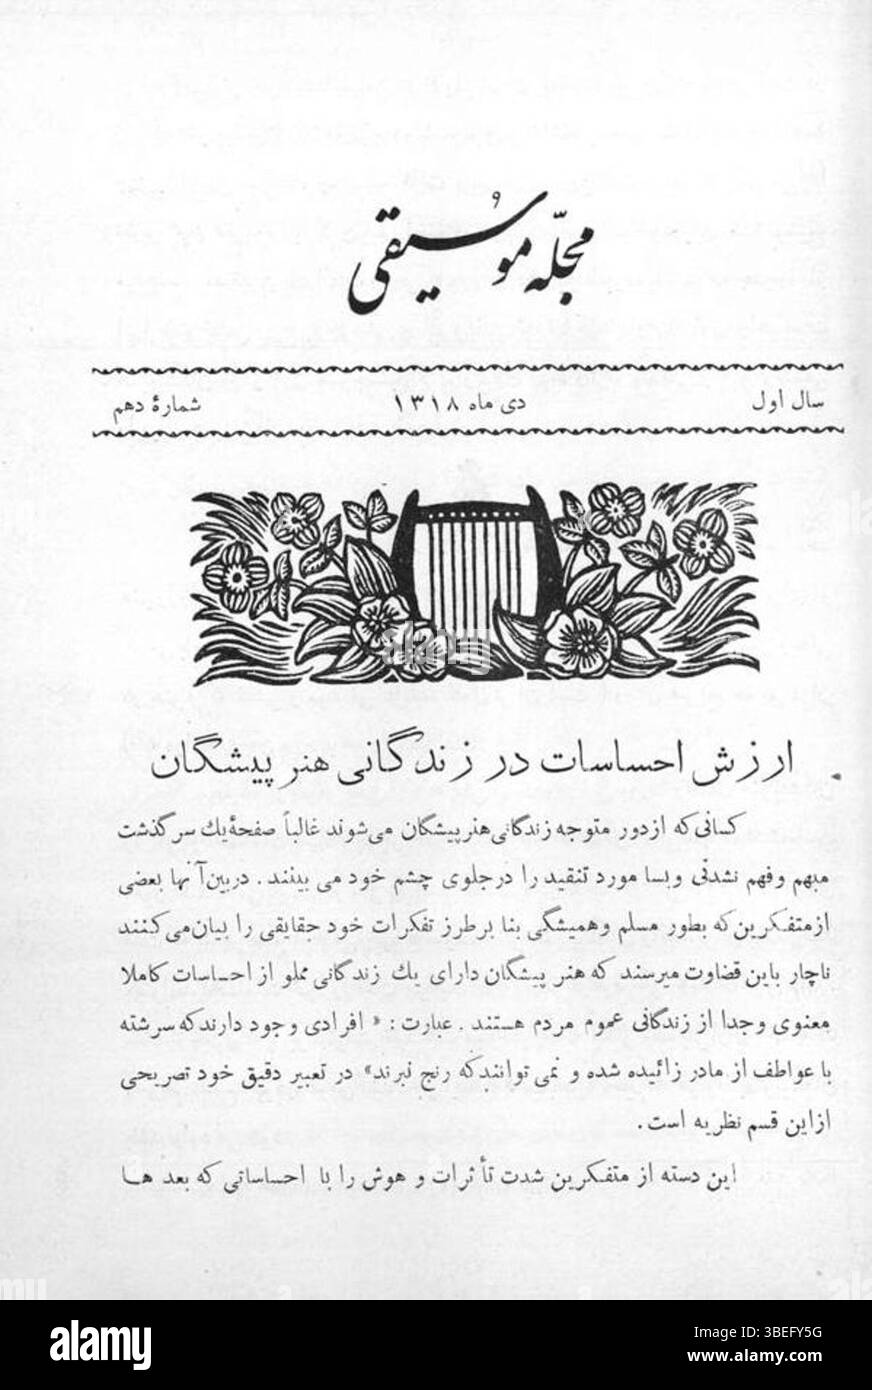 مجلّه موسیقی
سال اول
دی ماه ۱۳۱۸
شمارهٔ دهم
ارزش احساسات در زندگانی هنرپیشگان
کسانی‌که ازدور متوجه زندگانی‌هنرپیشگان می‌شوند غالباً صفحهٔ‌یك سرگذشت
مبهم وفهم نشدنی وبسا مورد تنقید را درجلوی چشم خود می بینند. دربین‌آنها بعضی
ازمتفکرین‌که بطور مسلم وهمیشگی بنا برطرز تفکرات خود حقایقی را بیان‌می‌کنند
ناچار باین قضاوت میرسند که هنرپیشگان دارای یك زندگانی مملو از احساسات کاملا
معنوی وجدا از زندگانی عموم مردم هستند. عبارت: « افرادی وجود دارندکه سرشته
با عواطف از مادر زائیده شده و نمی توانندکه رنج نبرند» در تعبیر دقیق خود تصریحی
ازاین قسم نظریه است.
این دسته از متفکرین شدت تأثرات و هوش را با احساساتی که بعد ها
alamy
Image ID: 3BEFY5G
www.alamy.com